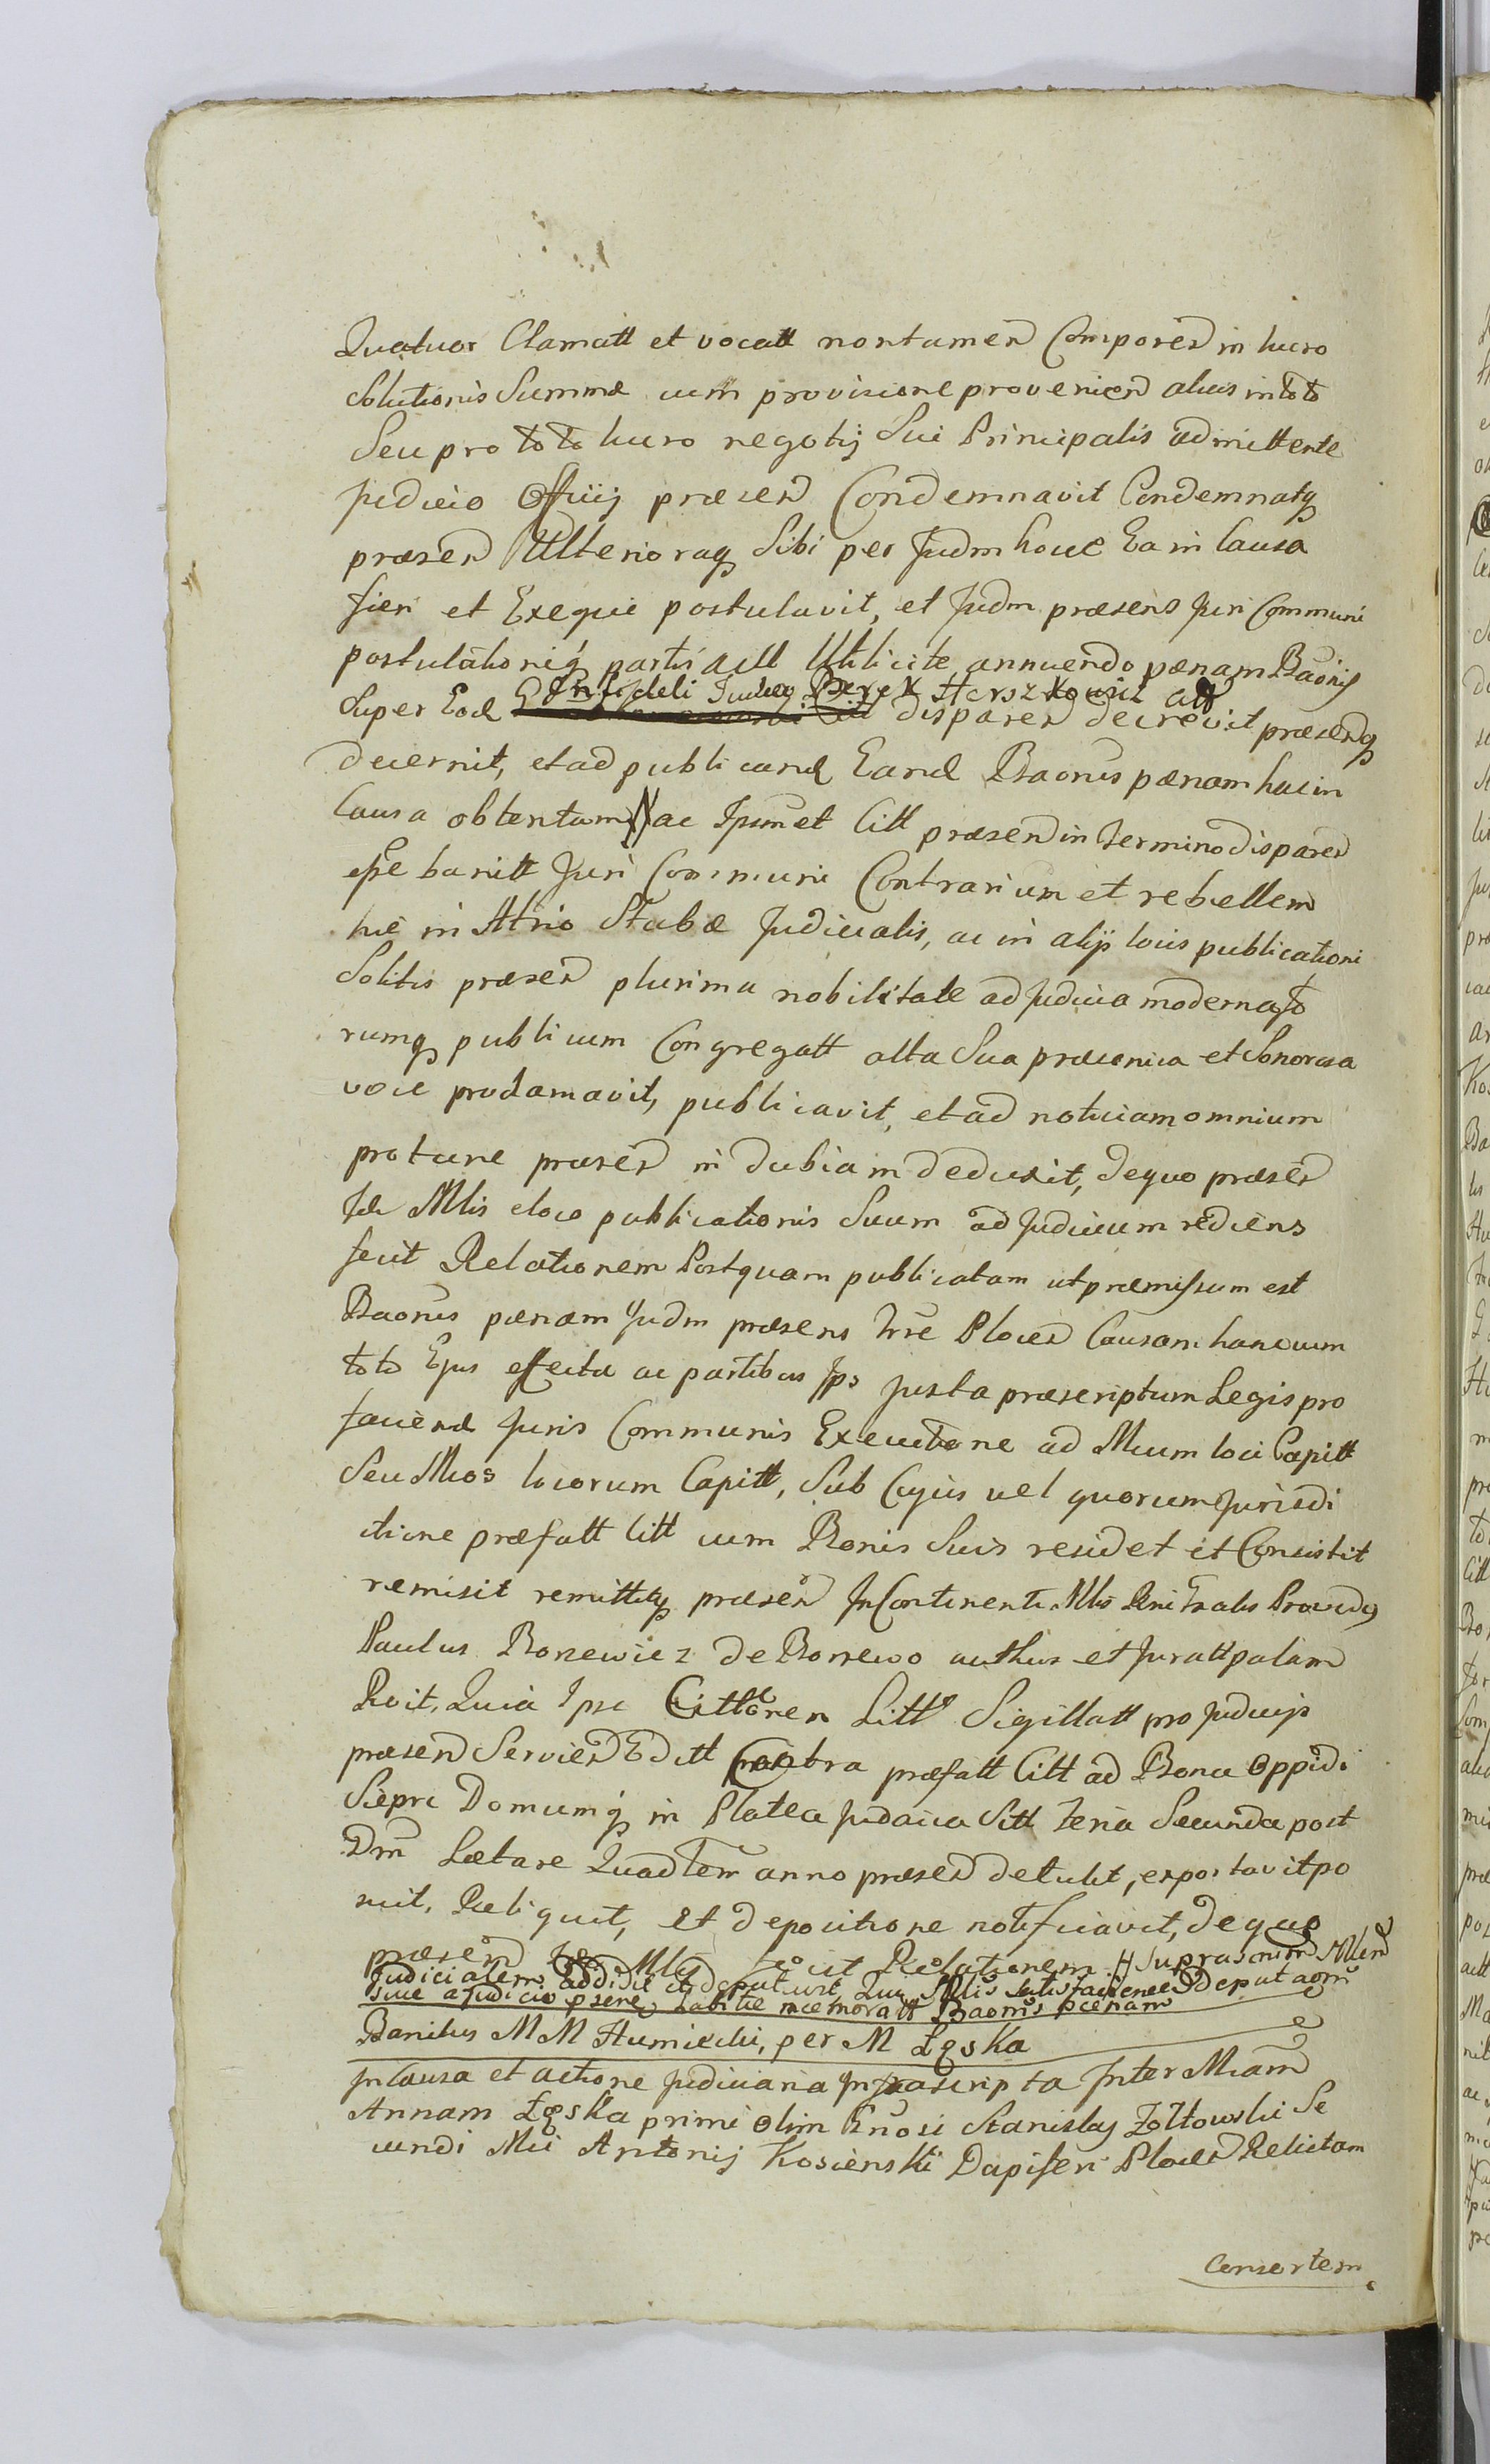 Quatuor Clamatt et vocatt nontamen Comparen in lucro
Solutionis Summæ cum provisione provenien alias in toto
Seu pro toto lucro negotij Sui Principalis admittente
Judicio Officij præsen Condemnavit Condemnatq
præsen Ulterioraq Sibi per Judm hocce Ea in Causa
fieri et Exequi postulavit, et Judm præsens Juri Communi
postulationiq partis act Utilicite annuendo pænam Baonis
Super Eod Infideli Judeo Berek Herszkowicz att
Citt disparen decrevit præsenq
decernit, et ad publicand Eand Baonis pænam hac in
Causa obtentam ac Ipsumet Citt præsen in termino disparen
esse banitt Juri Communi Contrarium et rebellem
hic in Atrio Stubæ Judicialis, ac in alijs locis publicationi
Solitis præsen plurima nobilitate ad Judicia moderna fo
rumq publicum Congregatt alta Sua præconica et Sonorosa
voce proclamavit, publicavit, et ad noticiam omnium
protunc præsen in dubiam deduxit, de quo præsen
Idr Mlis e loco publicationis Suum ad Judicium rediens
fecit Relationem Postquam publicatam ut præmissum est
Baonis pænam Judm præsens Trre Plocen Causam hanc cum
toto Ejus effectu ac partibus Ips juxta præscriptum Legis pro
faciend Juris Communis Executione ad Mcum loci Capitt
Seu Mcos locorum Capitt, Sub Cujus vel quorum Jurisdi
ctione præfatt Citt cum Bonis Suis residet et Consistit
remisit remittitq præsen In Continenti Mlis Rni Gnalis Providus
Paulus Bonewicz de Bonewo authus et Juratt palam
Rvit, Quia Ipse Cittonen Litt Sigillatt pro Judicijs
præsen Servien Editt Contra præfatt Citt ad Bona Oppidi
Siepre Domumq in Platea Judaica Sitt feria Secunda post
Dm Lætare Quadlem anno præsen detulit, exportavit po
suit, Reliquit, et depositione notificavit, de quo
præsen Idr Mlis fecit Relationem # supra
Judicialem addidit et deputavit Qui Mlis satisfaciene Deputaoni
suæ a Judicio psene habitæ memoratt Baonis pænam
Banitus M M Humiecki, per M Łąska
In Causa et actione Judiciaria Infrascripta Inter Mcam
Annam Łąska primi olim Gnosi Stanislaj Zołtowski Se
cundi Mci Antonij Kosienski Dapiferi Plocen Relictam
Consortem